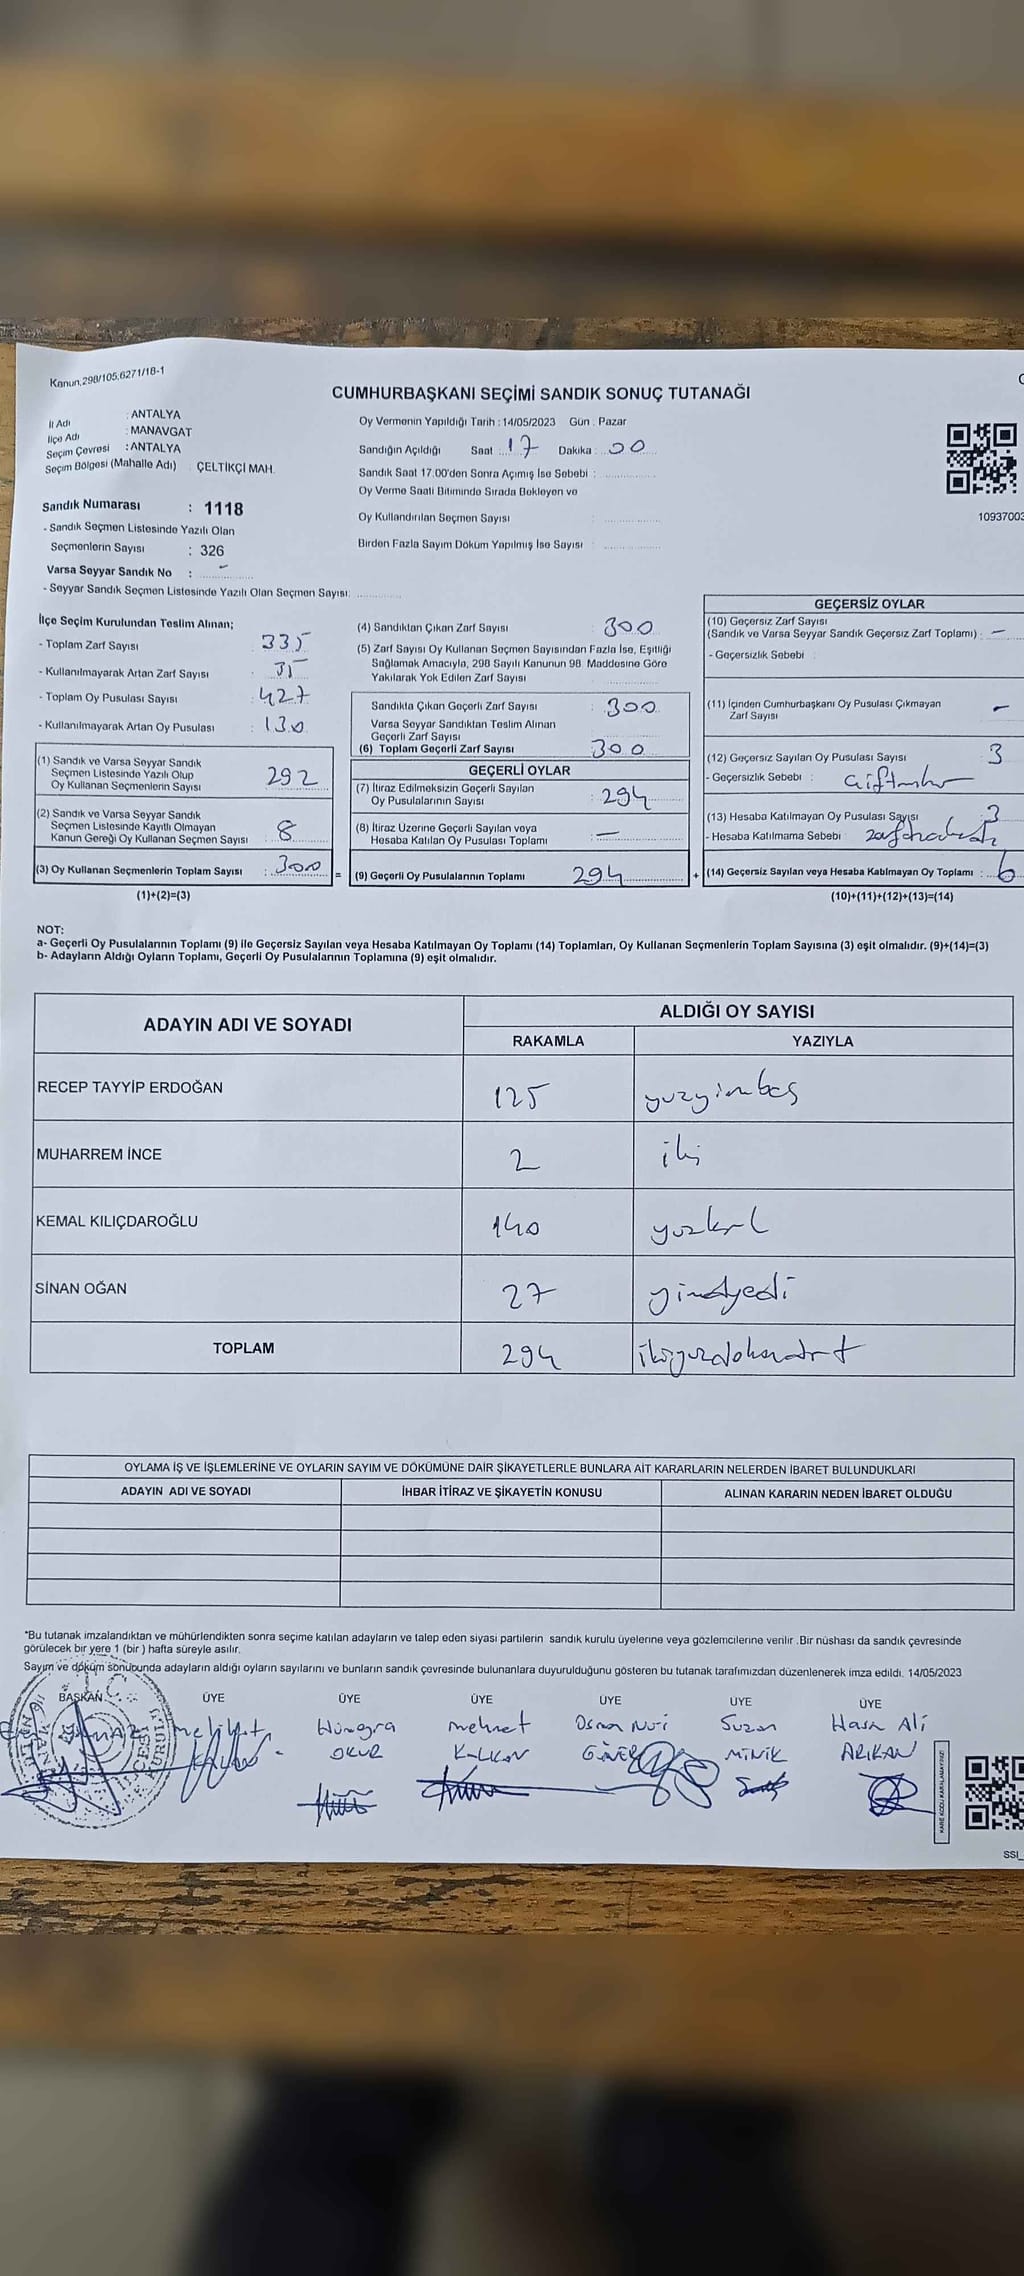 Kanun.298/105.6271/18-1
CUMHURBAŞKANI SEÇİMİ SANDIK SONUÇ TUTANAĞI
İl Adı : ANTALYA
İlçe Adı : MANAVGAT
Seçim Çevresi : ANTALYA
Seçim Bölgesi (Mahalle Adı) : ÇELTİKÇİ MAH.
Sandık Numarası : 1118
- Sandık Seçmen Listesinde Yazılı Olan
Seçmenlerin Sayısı : 326
Varsa Seyyar Sandık No : -
- Seyyar Sandık Seçmen Listesinde Yazılı Olan Seçmen Sayısı:
Oy Vermenin Yapıldığı Tarih : 14/05/2023 Gün : Pazar
Sandığın Açıldığı Saat 17 Dakika 00
Sandık Saat 17.00'den Sonra Açımış İse Sebebi :
Oy Verme Saati Bitiminde Sırada Bekleyen ve
Oy Kullandırılan Seçmen Sayısı :
Birden Fazla Sayım Döküm Yapılmış İse Sayısı :
1093700
İlçe Seçim Kurulundan Teslim Alınan;
- Toplam Zarf Sayısı : 335
- Kullanılmayarak Artan Zarf Sayısı : 35
- Toplam Oy Pusulası Sayısı : 427
- Kullanılmayarak Artan Oy Pusulası : 130
(1) Sandık ve Varsa Seyyar Sandık
Seçmen Listesinde Yazılı Olup
Oy Kullanan Seçmenlerin Sayısı : 292
(2) Sandık ve Varsa Seyyar Sandık
Seçmen Listesinde Kayıtlı Olmayan
Kanun Gereği Oy Kullanan Seçmen Sayısı : 8
(3) Oy Kullanan Seçmenlerin Toplam Sayısı : 300
(1)+(2)=(3)
(4) Sandıktan Çıkan Zarf Sayısı : 300
(5) Zarf Sayısı Oy Kullanan Seçmen Sayısından Fazla İse, Eşitliği
Sağlamak Amacıyla, 298 Sayılı Kanunun 98. Maddesine Göre
Yakılarak Yok Edilen Zarf Sayısı :
Sandıkta Çıkan Geçerli Zarf Sayısı : 300
Varsa Seyyar Sandıktan Teslim Alınan
Geçerli Zarf Sayısı :
(6) Toplam Geçerli Zarf Sayısı : 300
GEÇERLİ OYLAR
(7) İtiraz Edilmeksizin Geçerli Sayılan
Oy Pusulalarının Sayısı : 294
(8) İtiraz Üzerine Geçerli Sayılan veya
Hesaba Katılan Oy Pusulası Toplamı : -
= (9) Geçerli Oy Pusulalarının Toplamı 294
GEÇERSİZ OYLAR
(10) Geçersiz Zarf Sayısı
(Sandık ve Varsa Seyyar Sandık Geçersiz Zarf Toplamı) : -
- Geçersizlik Sebebi :
(11) İçinden Cumhurbaşkanı Oy Pusulası Çıkmayan
Zarf Sayısı -
(12) Geçersiz Sayılan Oy Pusulası Sayısı 3
- Geçersizlik Sebebi :
(13) Hesaba Katılmayan Oy Pusulası Sayısı 3
- Hesaba Katılmama Sebebi :
+ (14) Geçersiz Sayılan veya Hesaba Katılmayan Oy Toplamı : 6
(10)+(11)+(12)+(13)=(14)
NOT:
a- Geçerli Oy Pusulalarının Toplamı (9) ile Geçersiz Sayılan veya Hesaba Katılmayan Oy Toplamı (14) Toplamları, Oy Kullanan Seçmenlerin Toplam Sayısına (3) eşit olmalıdır. (9)+(14)=(3)
b- Adayların Aldığı Oyların Toplamı, Geçerli Oy Pusulalarının Toplamına (9) eşit olmalıdır.
ADAYIN ADI VE SOYADI
ALDIĞI OY SAYISI
RAKAMLA YAZIYLA
RECEP TAYYİP ERDOĞAN 125 yüzyirmibeş
MUHARREM İNCE 2 iki
KEMAL KILIÇDAROĞLU 140 yüzkırk
SİNAN OĞAN 27 yirmiyedi
TOPLAM 294 ikiyüzdoksandört
OYLAMA İŞ VE İŞLEMLERİNE VE OYLARIN SAYIM VE DÖKÜMÜNE DAİR ŞİKAYETLERLE BUNLARA AİT KARARLARIN NELERDEN İBARET BULUNDUKLARI
ADAYIN ADI VE SOYADI İHBAR İTİRAZ VE ŞİKAYETİN KONUSU ALINAN KARARIN NEDEN İBARET OLDUĞU
*Bu tutanak imzalandıktan ve mühürlendikten sonra seçime katılan adayların ve talep eden siyasi partilerin sandık kurulu üyelerine veya gözlemcilerine verilir .Bir nüshası da sandık çevresinde
görülecek bir yere 1 (bir ) hafta süreyle asılır.
Sayım ve döküm sonucunda adayların aldığı oyların sayılarını ve bunların sandık çevresinde bulunanlara duyurulduğunu gösteren bu tutanak tarafımızdan düzenlenerek imza edildi. 14/05/2023
BAŞKAN ÜYE ÜYE ÜYE ÜYE ÜYE ÜYE
Hümeyra Mehmet Osman Nuri Suzan Hasan Ali
OKUR KALKAN GÜNER MİNİK ARIKAN
KARE KODU KARALAMAYINIZ
SSI_